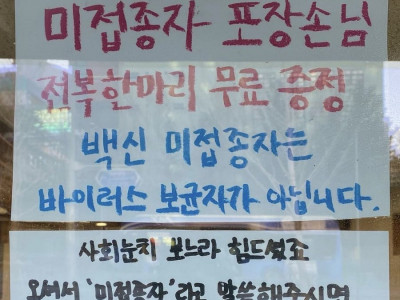 미접종자 포장손님
전복한마리 무료 증정
백신 미접종자는
바이러스 보균자가 아닙니다.
사회눈치 보느라 힘드셨죠
오셔서 '미접종자'라고 말씀해주시면